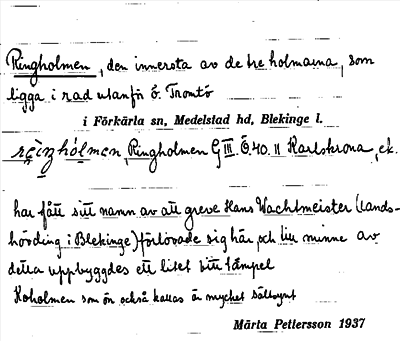 Ringholmen, den innersta av de tre holmarna, som
ligga i rad utanför Ö. Tromtö
i Förkärla sn, Medelstad hd, Blekinge l.
Ringholmen G III. Ö. 40. 11 Karlskrona, ek.
har fått sitt namn av att greve Hans Wachtmeister (lands-
hövding i Blekinge) förlovade sig här och till minne av
detta uppbyggdes ett litet tempel
Koholmen som ön också kallas är mycket sällsynt
Märta Petersson 1937